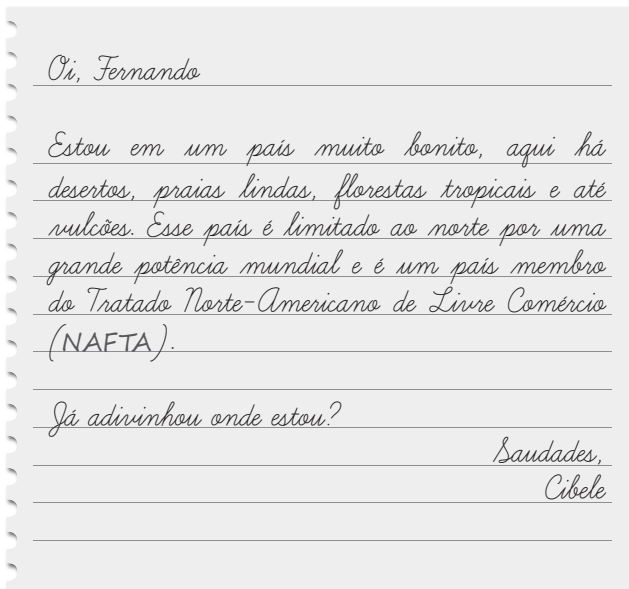 Oi, Fernando
Estou em um país muito bonito, aqui há
desertos, praias lindas, florestas tropicais e até
vulcões. Esse país é limitado ao norte por uma
grande potência mundial e é um país membro
do Tratado Norte-Americano de Livre Comércio
(NAFTA).
Já adivinhou onde estou?
Saudades,
Cibele